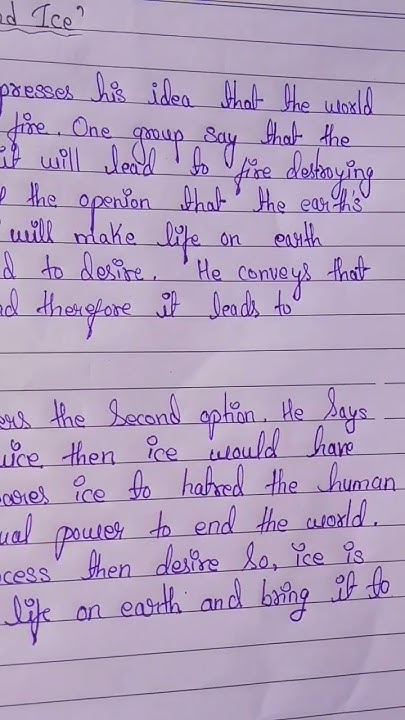 nd Ice?
presses his idea that the world
fire. One group say that the
it will lead to fire destroying
f the openion that the earth's
will make life on earth
d to desire. He conveys that
nd therefore it leads to
ers the second option. He says
wice then ice would have
ares ice to hatred the human
ual power to end the world.
cess then desire So, ice is
life on earth and bring it to